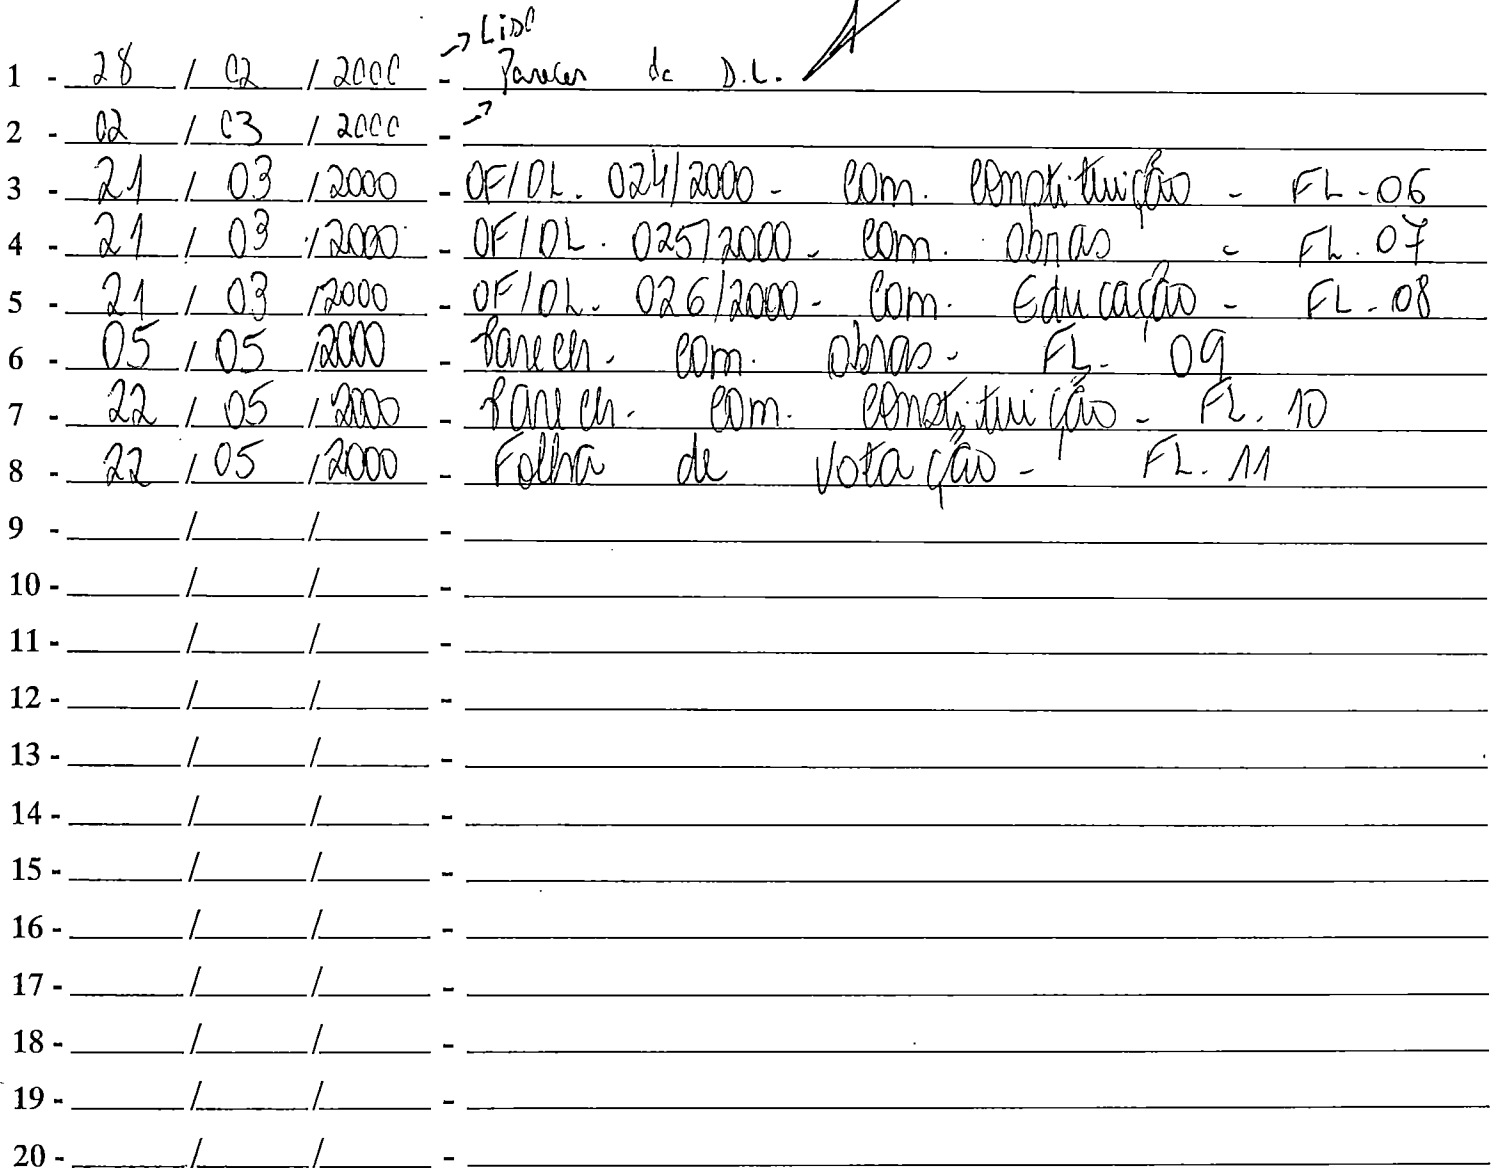 → Lido
1 - 28 / 02 / 2000 - Parecer da D.L.
2 - 02 / 03 / 2000 - →
3 - 21 / 03 / 2000 - OF/DL. 024/2000 - Com. Constituição - FL - 06
4 - 21 / 03 / 2000 - OF/DL. 025/2000 - Com. Obras - FL. 07
5 - 21 / 03 / 2000 - OF/DL. 026/2000 - Com. Educação - FL - 08
6 - 05 / 05 / 2000 - Parecer. Com. Obras - FL. 09
7 - 22 / 05 / 2000 - Parecer. Com. Constituição - FL. 10
8 - 22 / 05 / 2000 - Folha de Votação - FL. 11
9 - / / -
10 - / / -
11 - / / -
12 - / / -
13 - / / -
14 - / / -
15 - / / -
16 - / / -
17 - / / -
18 - / / -
19 - / / -
20 - / / -